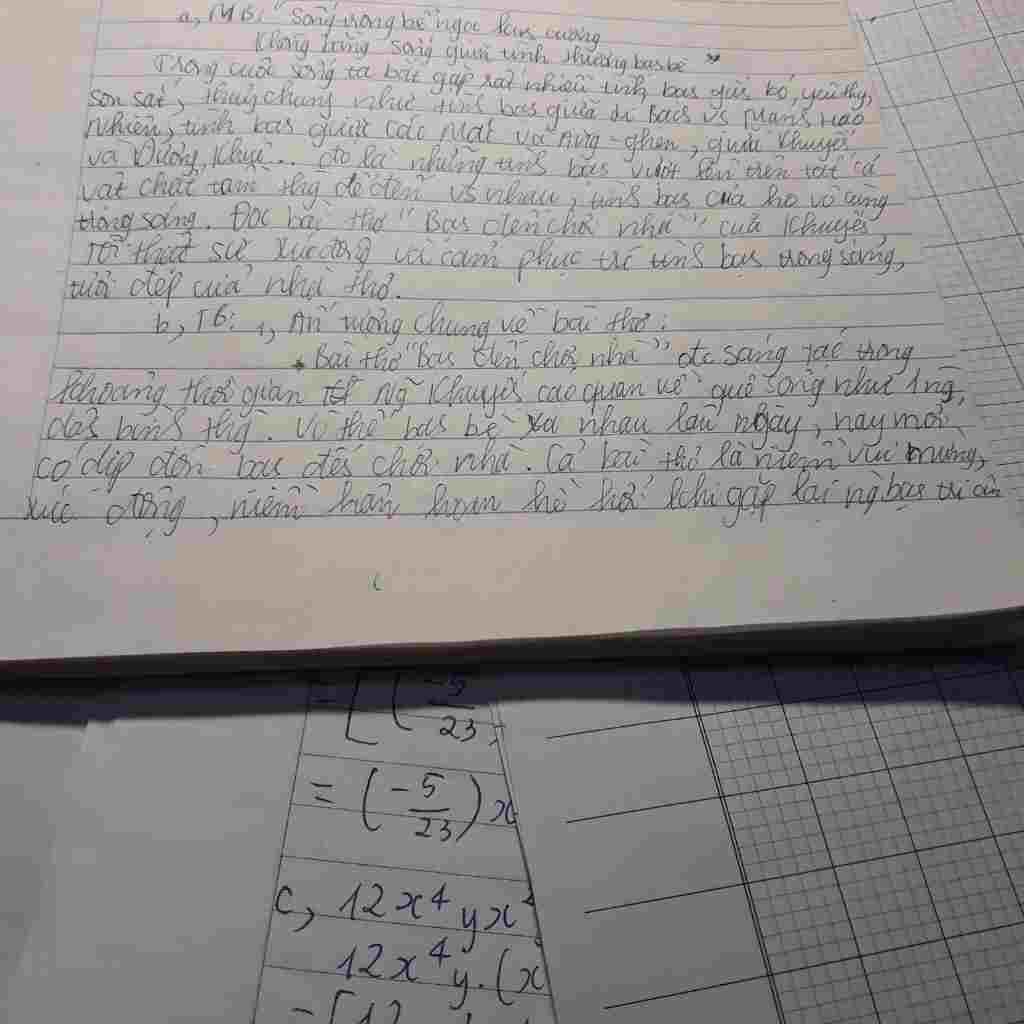 a, MB: "Sống trong bể ngọc kim cương
Không bằng sống giữa tình thương bạn bè"
Trong cuộc sống ta bắt gặp rất nhiều tình bạn gắn bó, yêu thg,
son sắt, thuỷ chung như tình bạn giữa Lí Bạch vs Mạnh Hạo
Nhiên, tình bạn giữa Các Mát và Ăng-ghen, giữa Khuyến
và Dương Khuê... đó là những tình bạn vượt lên trên tất cả
vật chất tầm thg để đến vs nhau, tình bạn của họ vô cùng
trong sáng. Đọc bài thơ "Bạn đến chơi nhà" của Khuyến,
Tôi thật sự xúc động và cảm phục trc tình bạn trong sáng,
tươi đẹp của nhà thơ.
b, TB: 1, Ấn tượng chung về bài thơ:
Bài thơ "Bạn đến chơi nhà" đc sáng tác trong
khoảng thời gian Ng Khuyến cáo quan về quê sống như 1 ng
dân bình thg. Vì thế bạn bè xa nhau lâu ngày, nay mới
có dịp đón bạn đến chơi nhà. Cả bài thơ là niềm vui mừng,
xúc động, niềm hân hoan hồ hởi khi gặp lại ng bạn tri âm
= [(-5/23)
= (-5/23) x
c, 12x⁴ y x
12x⁴ y. (x
= [12